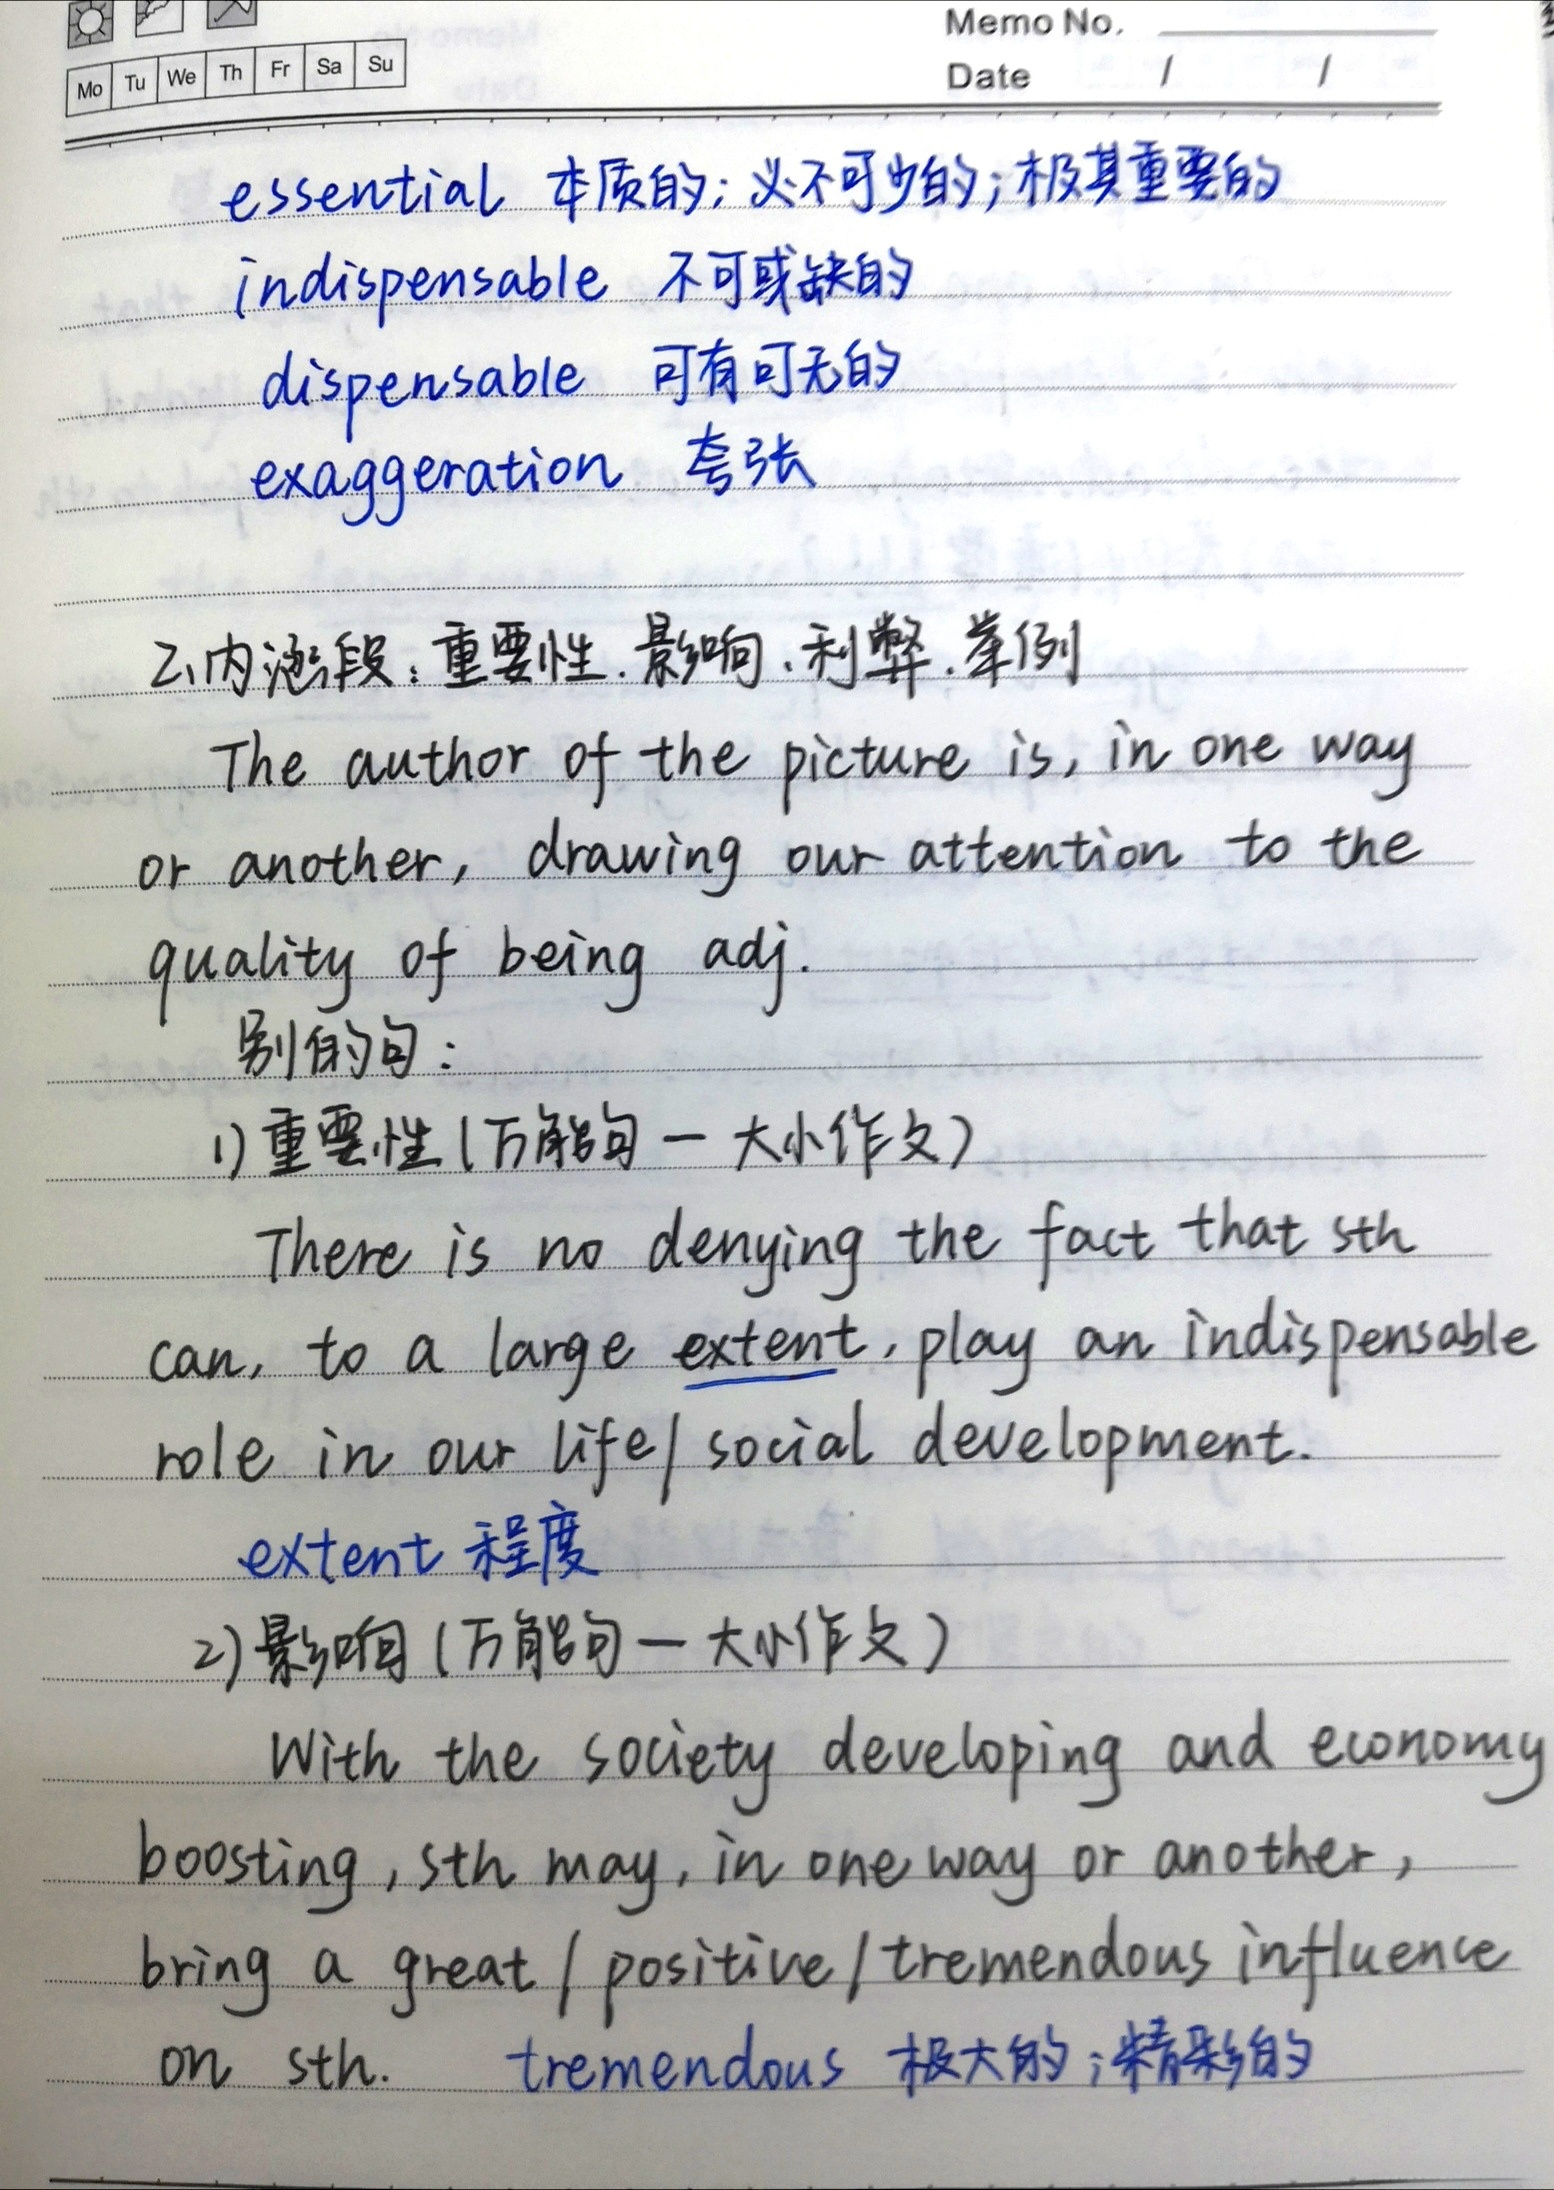 Memo No.
Mo Tu We Th Fr Sa Su
Date / /
essential 本质的；必不可少的；极其重要的
indispensable 不可或缺的
dispensable 可有可无的
exaggeration 夸张
2、内涵段：重要性.影响、利弊.举例
The author of the picture is, in one way
or another, drawing our attention to the
quality of being adj.
别的句：
1) 重要性（万能句一大小作文）
There is no denying the fact that sth
can, to a large extent, play an indispensable
role in our life/ social development.
extent 程度
2) 影响（万能句一大小作文）
With the society developing and economy
boosting, sth may, in one way or another,
bring a great / positive / tremendous influence
on sth. tremendous 极大的；精彩的